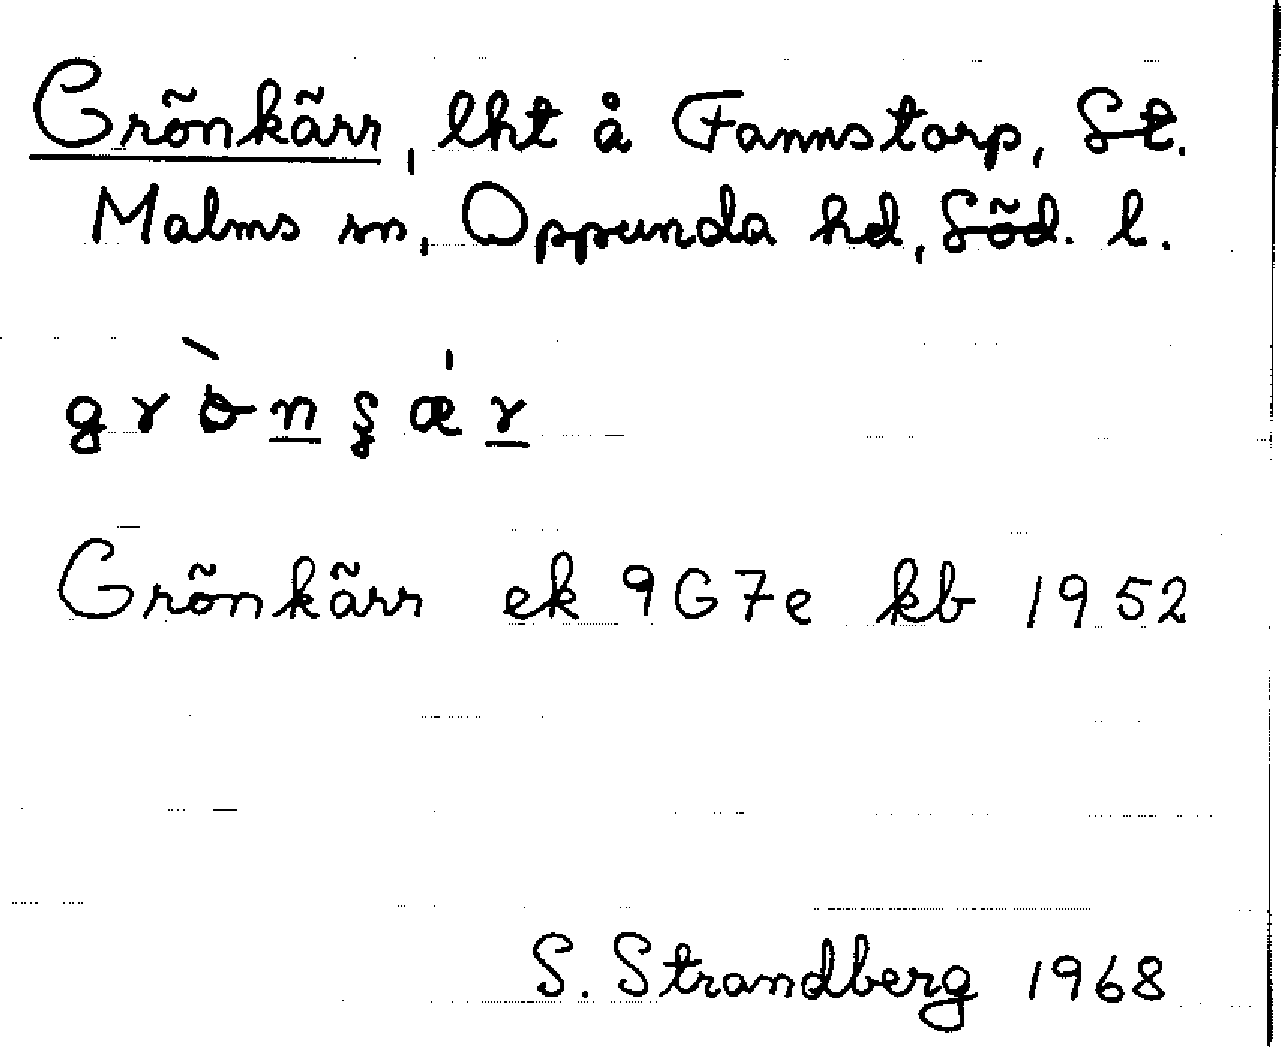 Grönkärr, lht å Fannstorp, St.
Malms sn, Oppunda hd, Söd. l.
Grönkärr ek 9G7e kb 1952
S. Strandberg 1968